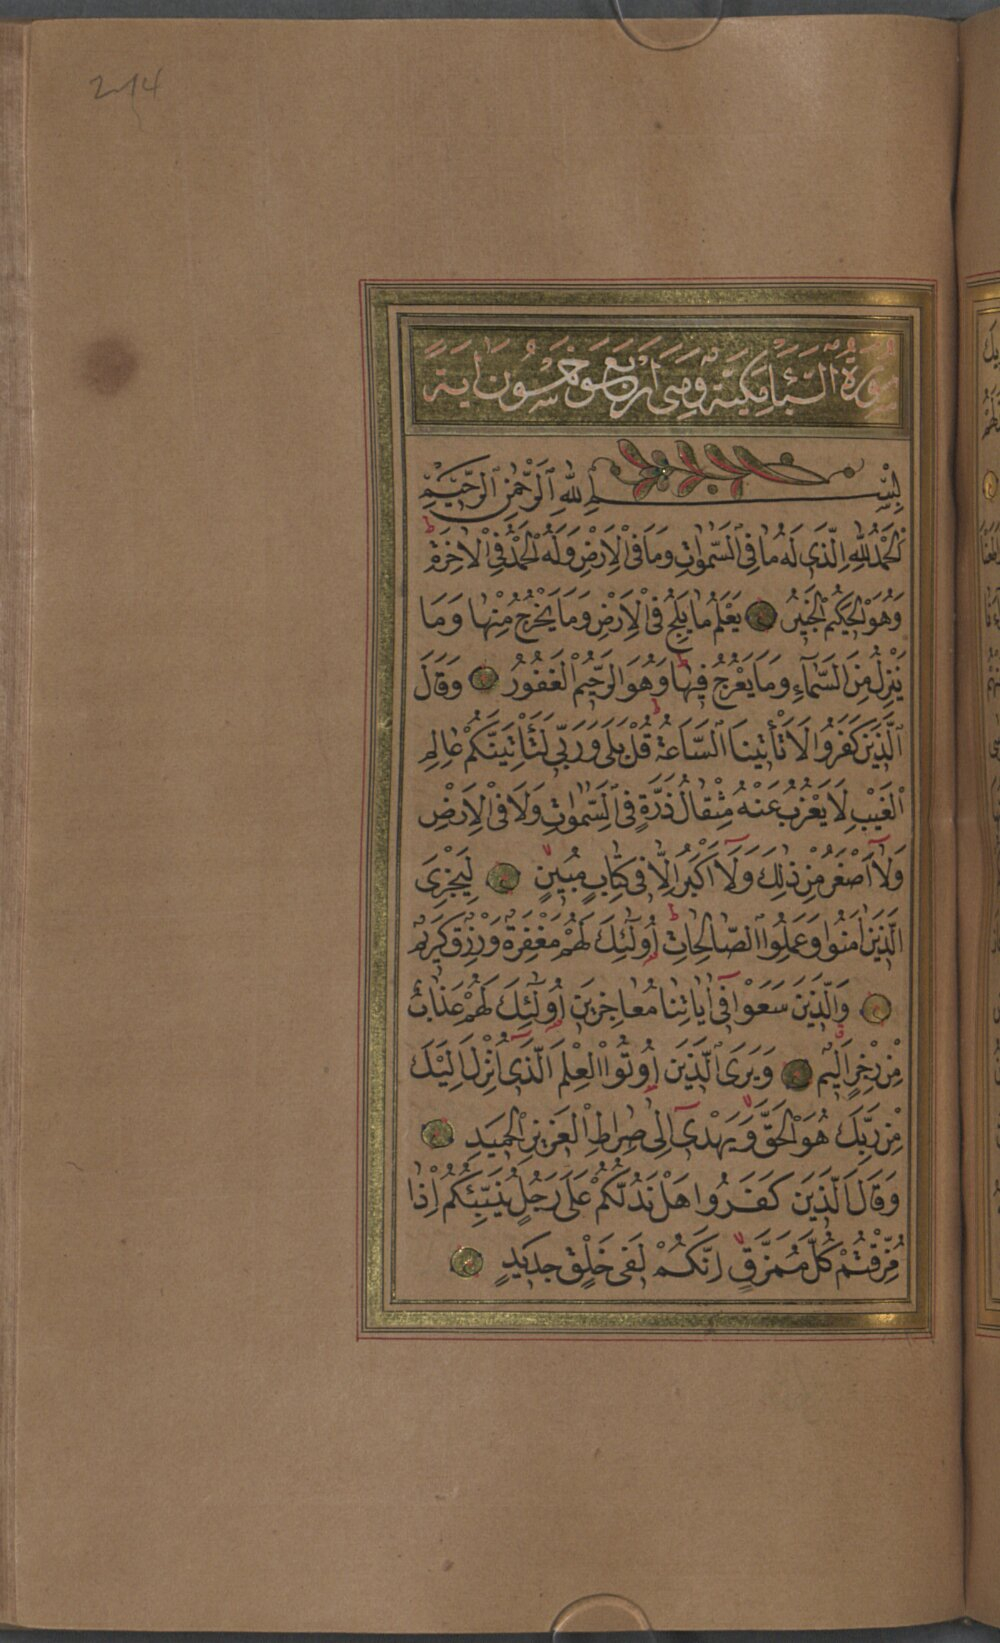 214
سُورَةُ السَّبَأِ مَكِّيَّةٌ وَهِيَ اَرْبَعٌ وَخَمْسُونَ اٰيَةً
بِسْمِ اللهِ الرَّحْمٰنِ الرَّحِيمِ
اَلْحَمْدُ لِلّٰهِ الَّذِى لَهُ مَا فِى السَّمٰوَاتِ وَمَا فِى الْاَرْضِ وَلَهُ الْحَمْدُ فِى الْاٰخِرَةِ ط
وَهُوَ الْحَكِيمُ الْخَبِيرُ يَعْلَمُ مَا يَلِجُ فِى الْاَرْضِ وَمَا يَخْرُجُ مِنْهَا وَمَا
يَنْزِلُ مِنَ السَّمَآءِ وَمَا يَعْرُجُ فِيهَا ط وَهُوَ الرَّحِيمُ الْغَفُورُ وَقَالَ
الَّذِينَ كَفَرُوا لَا تَأْتِينَا السَّاعَةُ ط قُلْ بَلٰى وَرَبِّى لَتَأْتِيَنَّكُمْ عَالِمِ
الْغَيْبِ لَا يَعْزُبُ عَنْهُ مِثْقَالُ ذَرَّةٍ فِى السَّمٰوَاتِ وَلَا فِى الْاَرْضِ
وَلَآ اَصْغَرُ مِنْ ذٰلِكَ وَلَآ اَكْبَرُ اِلَّا فِى كِتَابٍ مُبِينٍ لا لِيَجْزِىَ
الَّذِينَ اٰمَنُوا وَعَمِلُوا الصَّالِحَاتِ ط اُولٰٓئِكَ لَهُمْ مَغْفِرَةٌ وَرِزْقٌ كَرِيمٌ
وَالَّذِينَ سَعَوْا فِىٓ اٰيَاتِنَا مُعَاجِزِينَ اُولٰٓئِكَ لَهُمْ عَذَابٌ
مِنْ رِجْزٍ اَلِيمٌ وَيَرَى الَّذِينَ اُوتُوا الْعِلْمَ الَّذِىٓ اُنْزِلَ اِلَيْكَ
مِنْ رَبِّكَ هُوَ الْحَقَّ لا وَيَهْدِىٓ اِلٰى صِرَاطِ الْعَزِيزِ الْحَمِيدِ
وَقَالَ الَّذِينَ كَفَرُوا هَلْ نَدُلُّكُمْ عَلٰى رَجُلٍ يُنَبِّئُكُمْ اِذَا
مُزِّقْتُمْ كُلَّ مُمَزَّقٍ لا اِنَّكُمْ لَفِى خَلْقٍ جَدِيدٍ